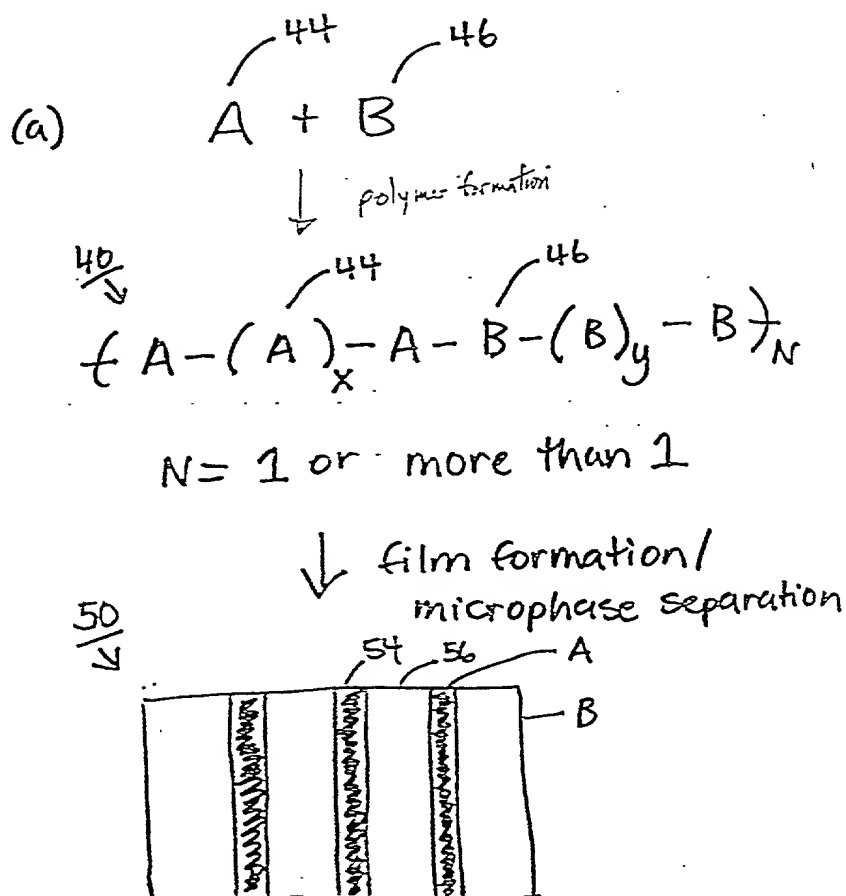 44 46
(a) A + B
polymer formation
40 44 46
( A-( A )x- A - B -( B )y - B )N
N= 1 or more than 1
film formation/
microphase separation
50 54 56 A
B